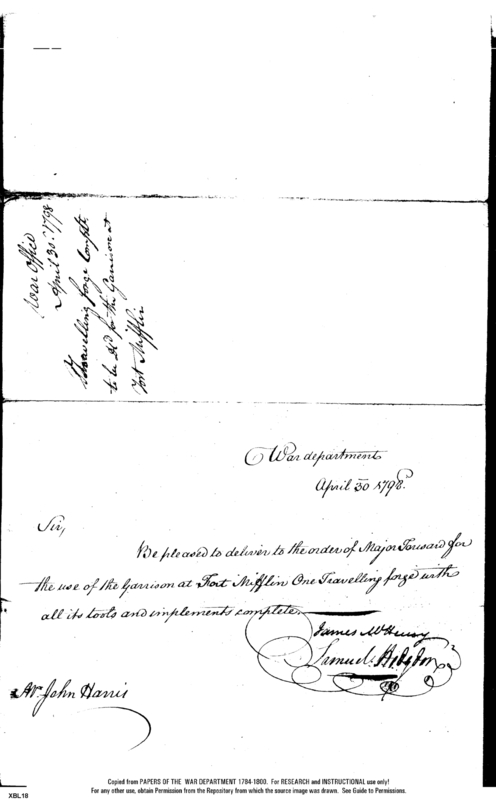 War Office
April 30. 1798
Travelling forge Complt.
to be dd for the Garrison at
Fort Mifflin
War department
April 30 1798.
Sir,
Be pleased to deliver to the order of Major Tousard for
the use of the Garrison at Fort Mifflin One Travelling forge with
all its tools and implements complete.
James McHenry
Samuel Hodgdon
Mr. John Harris
Copied from PAPERS OF THE WAR DEPARTMENT 1784-1800. For RESEARCH and INSTRUCTIONAL use only!
For any other use, obtain Permission from the Repository from which the source image was drawn. See Guide to Permissions.
XBL18